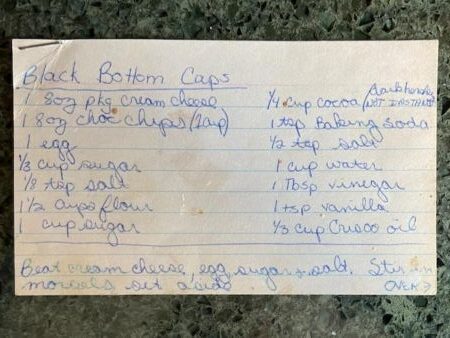 Black Bottom Cups
1 8oz pkg cream cheese
1 8oz choc chips (1cup)
1 egg
1/3 cup sugar
1/8 tsp salt
1 1/2 cups flour
1 cup sugar
1/4 cup cocoa (NOT INSTANT)
1 tsp Baking Soda
1/2 tsp salt
1 cup water
1 Tbsp vinegar
1 tsp vanilla
1/3 cup Crisco oil
Beat cream cheese, egg, sugar + salt. Stir in
morsels set aside.
OVER →